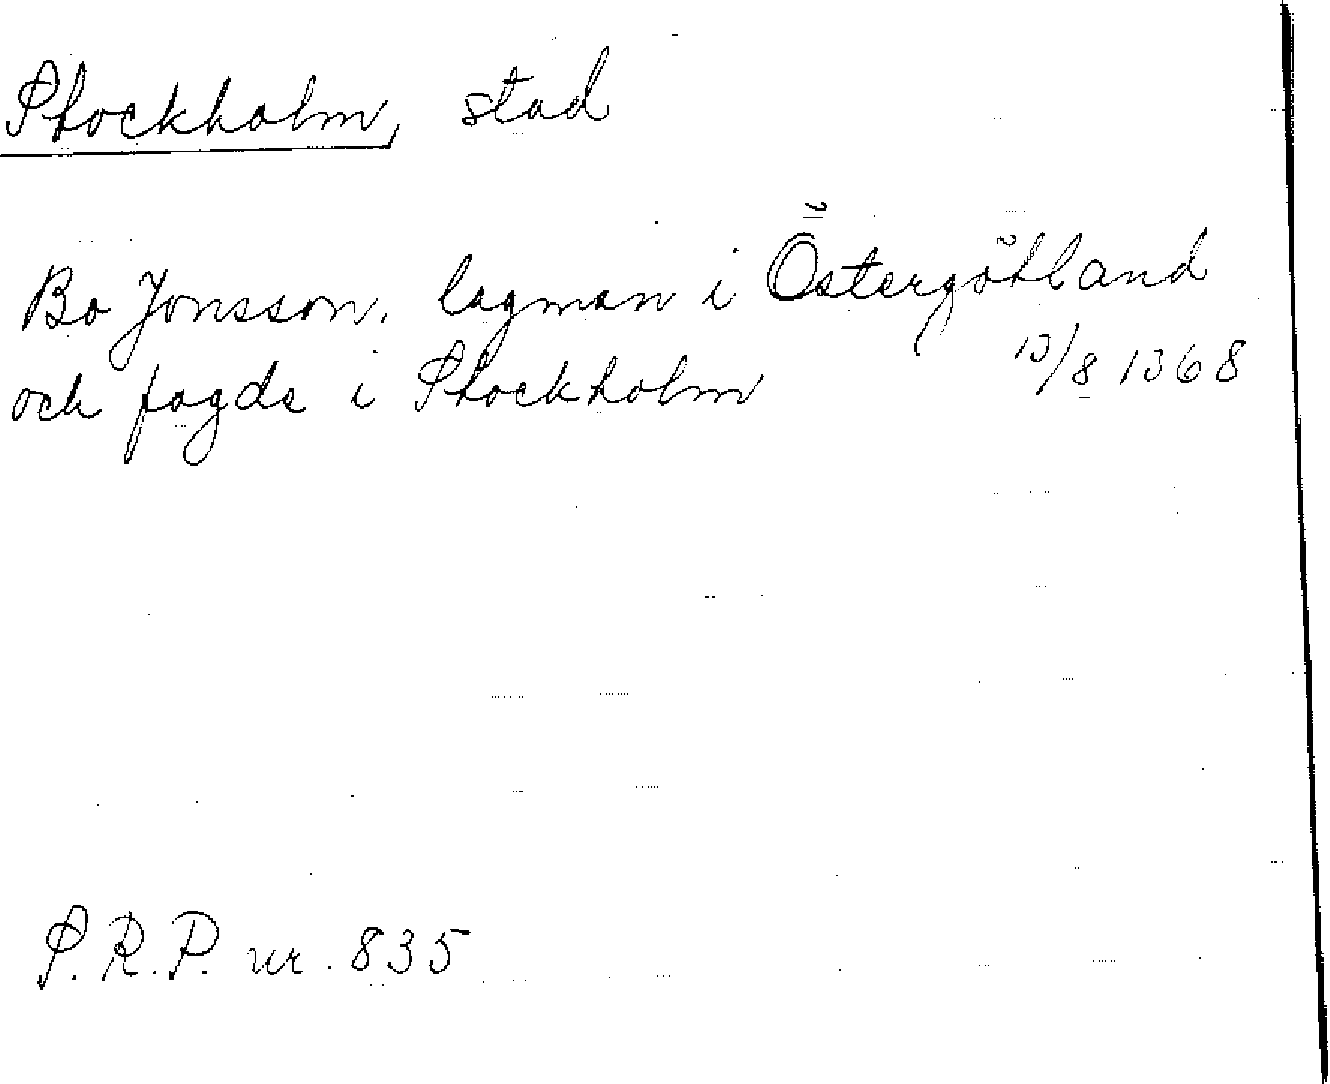 Stockholm, stad
Bo Jonsson, lagman i Östergötland
och fogde i Stockholm 13/8 1368
S.R.P. nr. 835